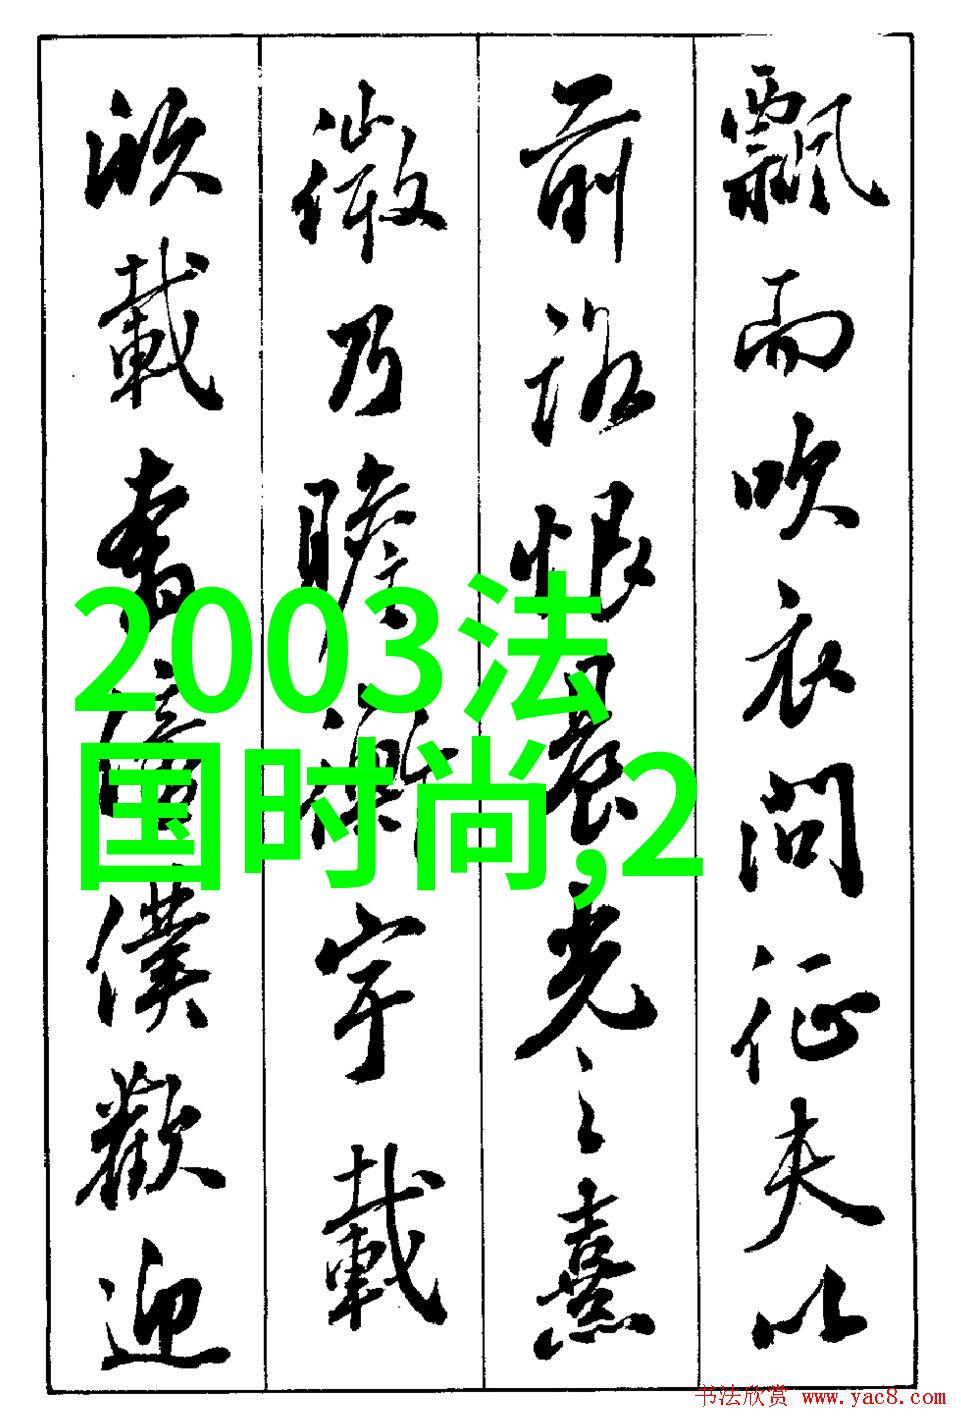 飄而吹衣問征夫以
前路恨晨光之熹
微乃瞻衡宇載
欣載奔僮僕歡迎
2003法
国时尚,2
书法欣赏 www.yac8.com